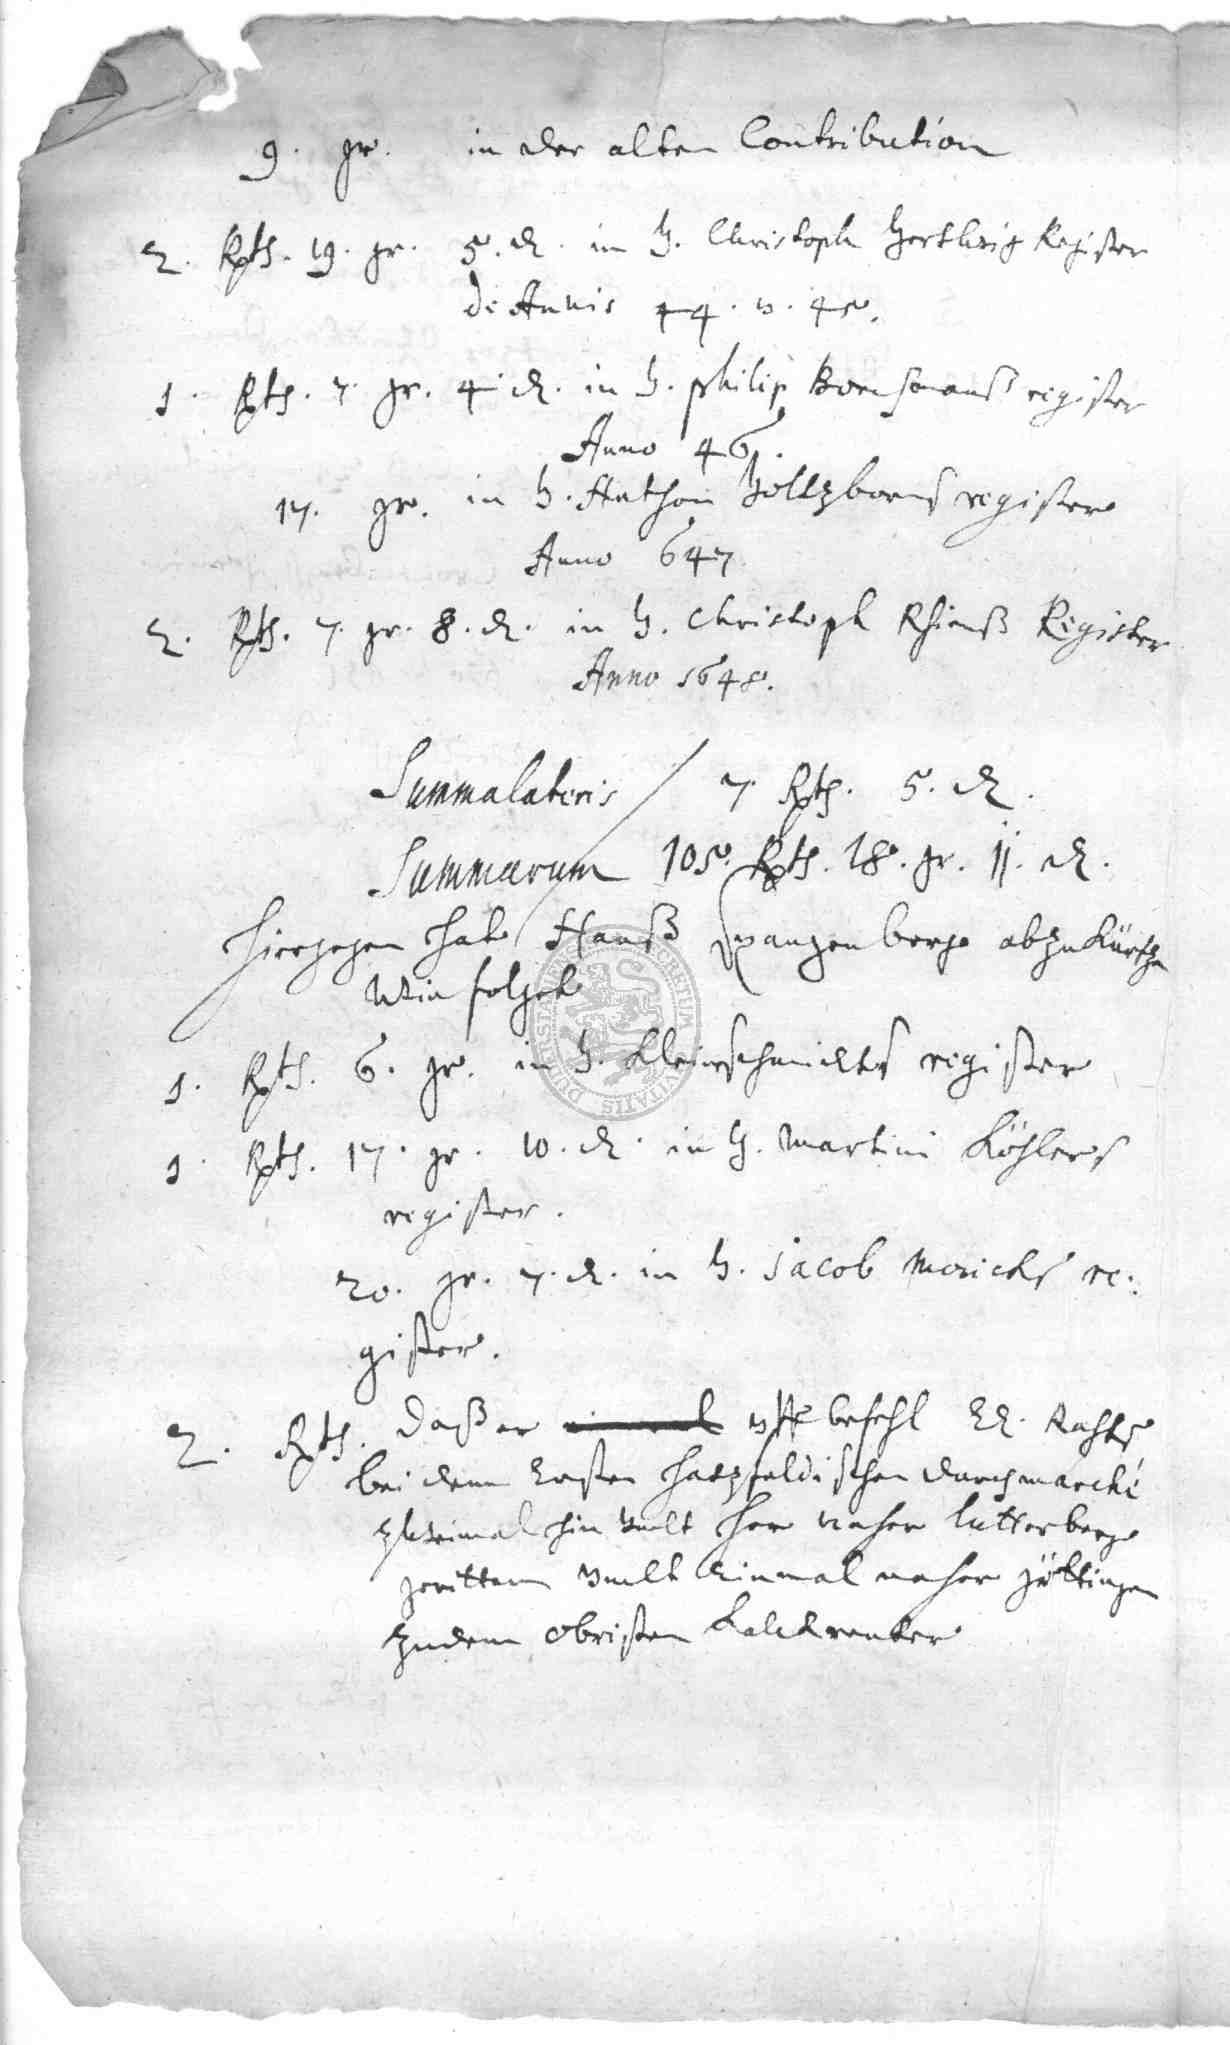 9. gr. in der alten Contribution
2. Rth. 19. gr. 5. d. in H. Christoph Hartwig Register
de Annis 44. u. 45.
1. Rth. 7. gr. 4 d. in H. philip register
Anno 46.
17. gr. in H. register
Anno 647
2. Rth. 7. gr. 8. d. in H. Christoph Register
Anno 1648.
Summalateris / 7 Rth. 5. d.
Summarum 105. Rth. 18. gr. 11. d.
Hiergegen hat Hanß Spangenberge abzukürtzen
Wie folget
1. Rth. 6. gr. in H. Kleinschmidts register
1. Rth. 17. gr. 10. d. in H. Martini Köhlers
register.
20. gr. 7. d. in H. Jacob re-
gister.
2. Rth. daß er uff befehl EE. Rahts
bei dem Ersten Hatzfeldischen durchmarche
zweimal hin undt her naher lutterberge
geritten undt Einmal naher göttingen
zu dem Obristen